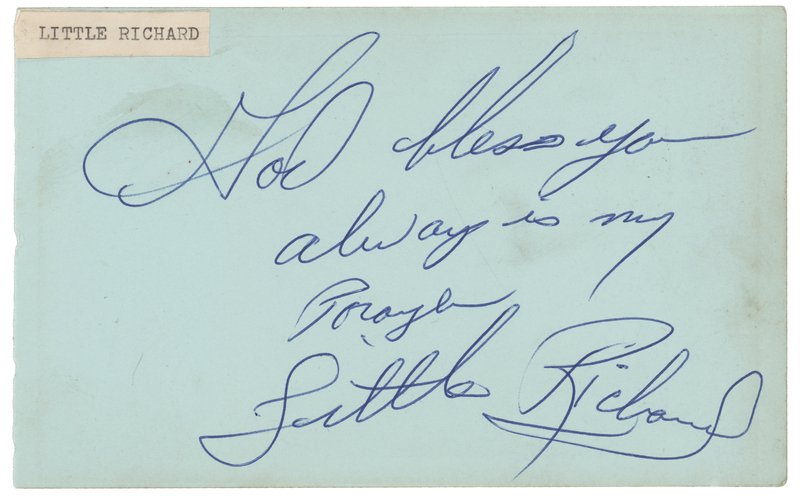 LITTLE RICHARD
God bless you
always is my
Prayer
Little Richard